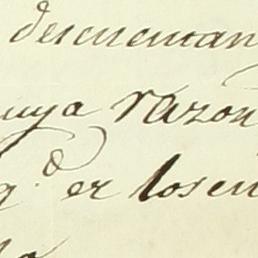 descuentan
cuya razon
q.^d er los en